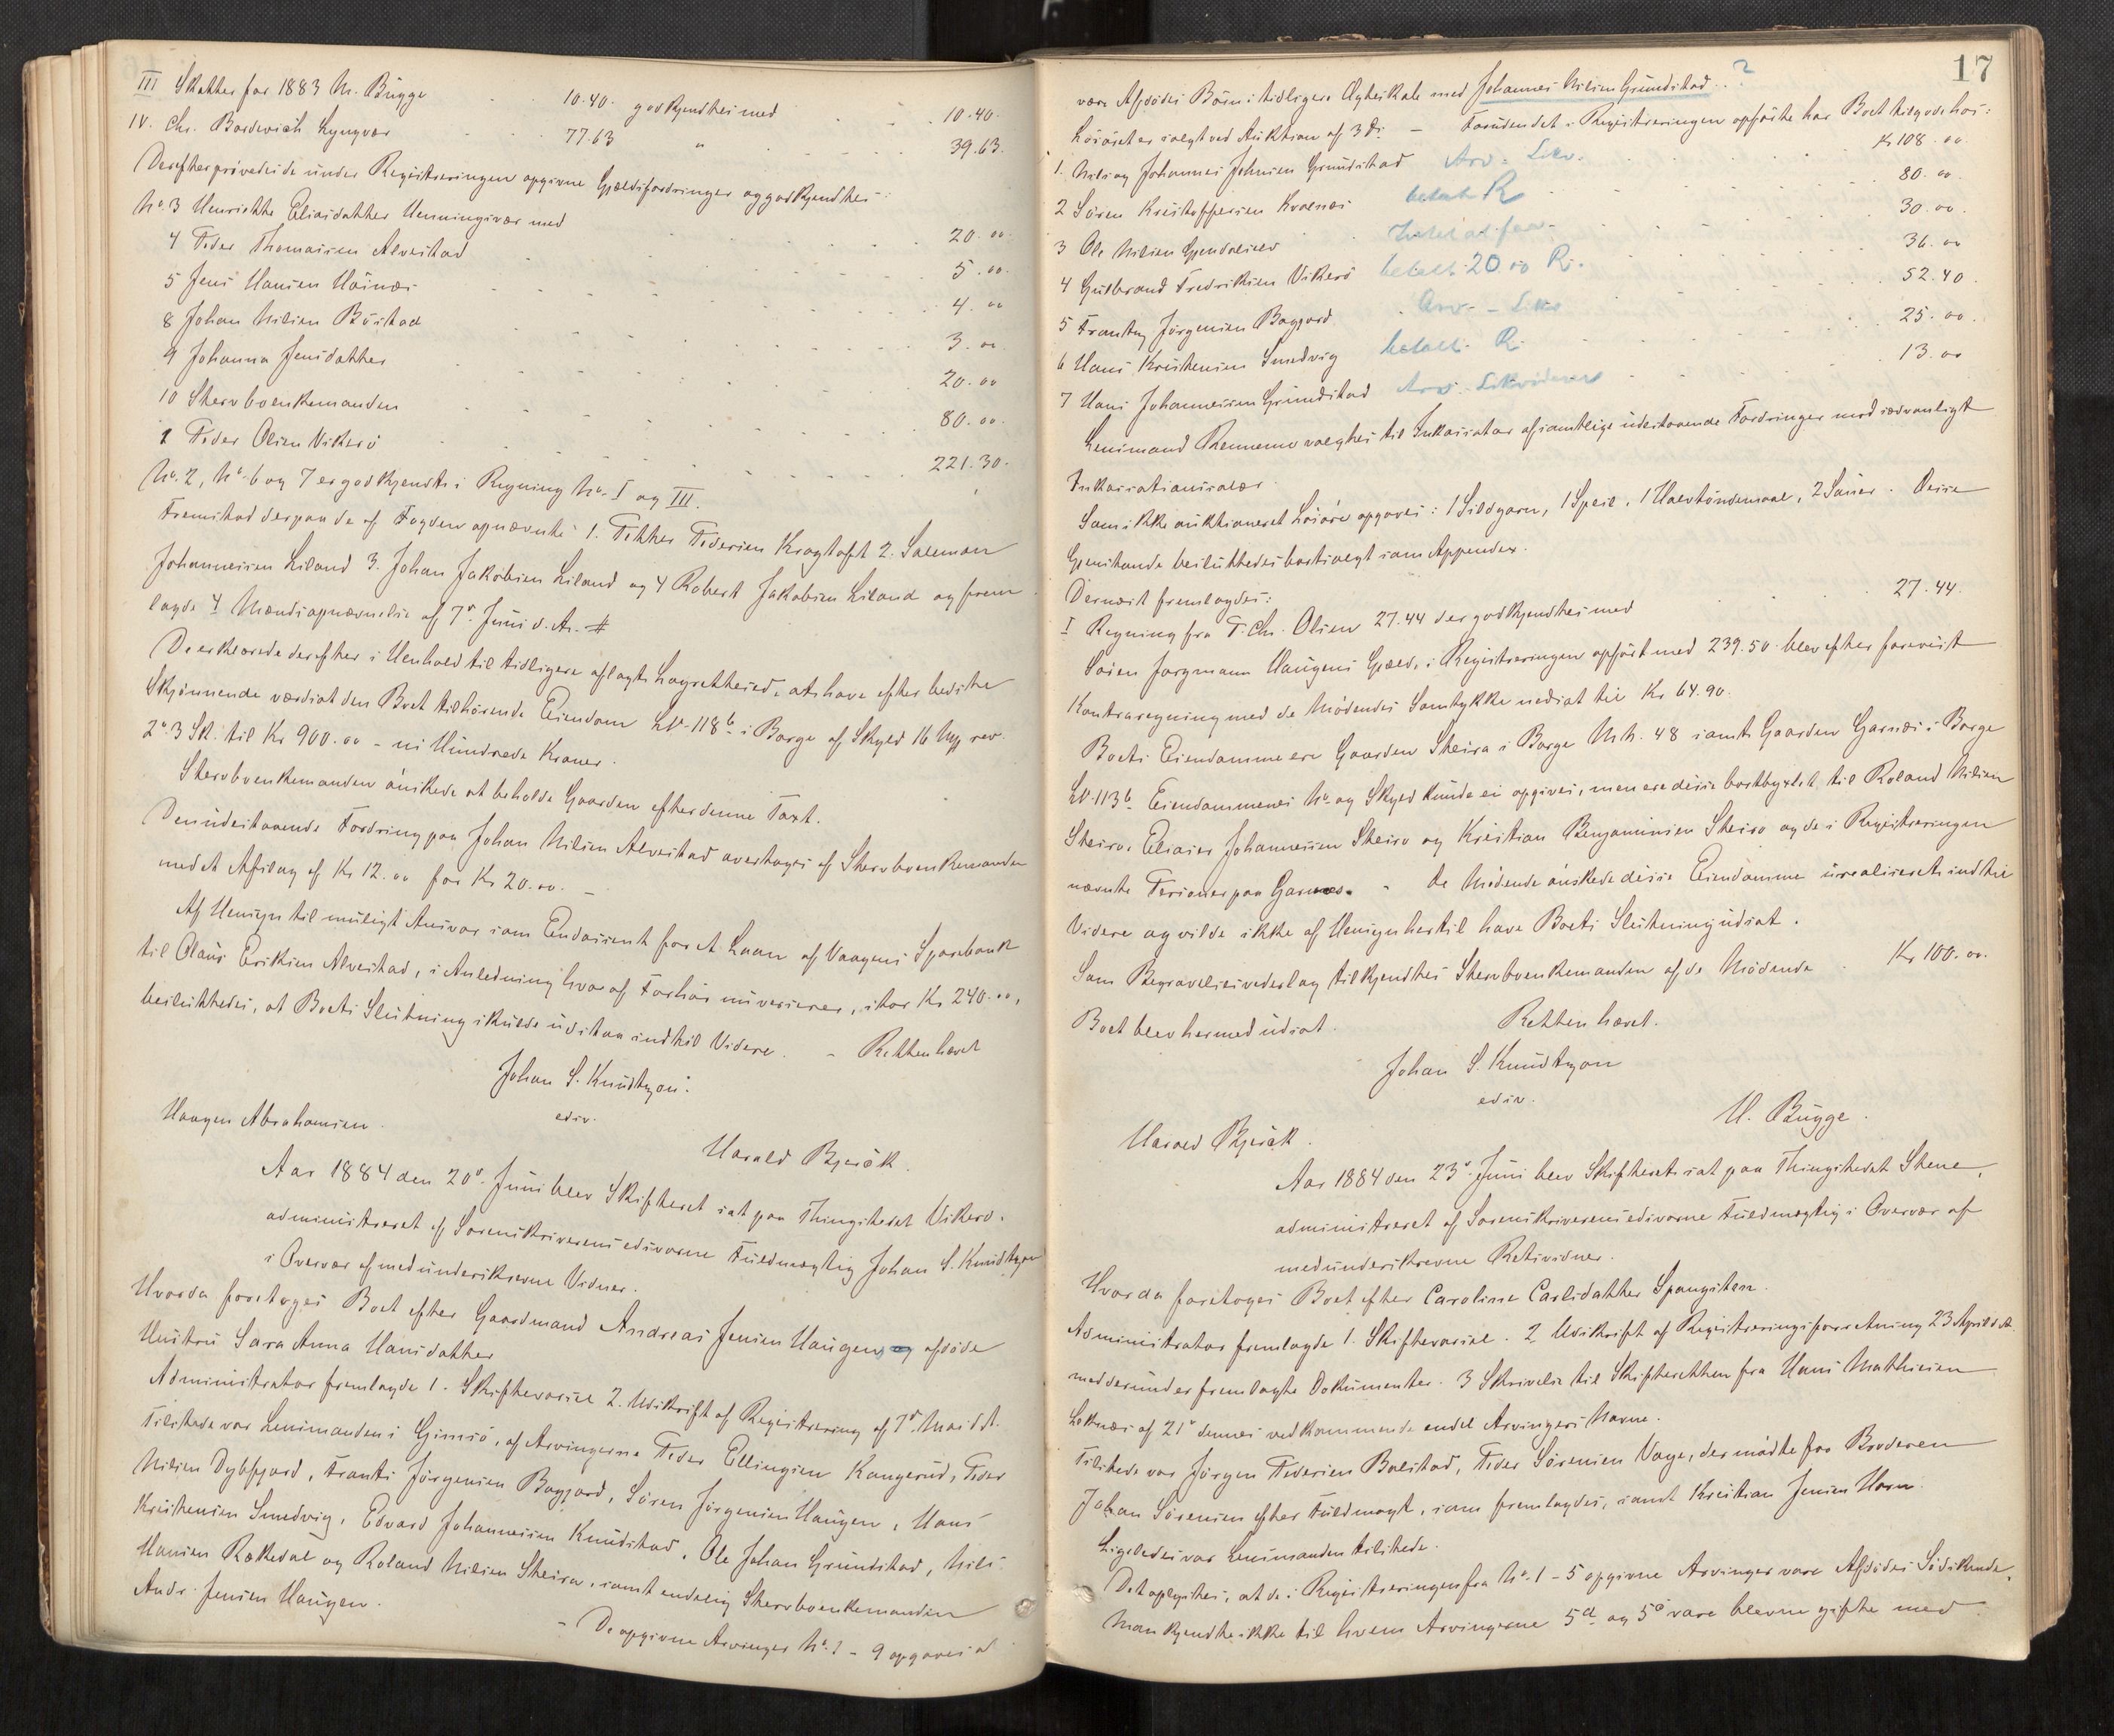 III Skatter for 1883 M. Bugge 10.40. godkjendtes med 10.40.
IV. Chr. Bordewich Lyngvær 77.63 " 39.63.
Derefter prøvedes de under Registreringen opgivne Gjældsfordringer og godkjendtes:
No. 3 Henrikke Eliasdatter Henningsvær med 20.00
4 Peder Thomassen Alvestad 5.00.
5 Jens Hansen Hòinæs 4.00
8 Johan Nilsen Bòstad 3.00.
9 Johanna Jensdatter 20.00
10 Stervboenkemanden 80.00.
1 Peder Olsen Vikerò 221.30.
No. 2, No. 6 og 7 er godkjendt i Regning No. I og III.
Fremstod derpaa de af Fogden opnævnte: 1. Petter Pedersen Kragtoft 2. Salemon
Johannessen Liland 3. Johan Jakobsen Liland og 4 Robert Jakobsen Liland og frem-
lagde 4 Mændsopnævnelse af 7de Juni d. A. #
De erklærede derefter i Henhold til tidligere aflagt Lagretteseed, at have efter bedste
Skjønnende værdsat den Boet tilhørende Eiendom LN. 118b i Borge af Skyld 16 Mrk. rev.
2 o. 3 Sk. til Kr 900.00 - ni Hundrede Kroner.
Stervboenkemanden ònskede at beholde Gaarden efter denne Taxt.
Den udestaaende Fordring paa Johan Nilsen Alvestad overtoges af Stervboenkemanden
med et Afslag af Kr 12.00 for Kr 20.00. -
Af Hensyn til muligt Ansvar som Endossent for et Laan af Vaagens Sparebank
til Olaus Eriksen Alvestad, i Anledning hvoraf Forhòr nu verserer, stor Kr 240.00,
besluttedes, at Boets Slutning skulde udstaa indtil Videre. - Retten hævet
Johan S. Knudtzon.
edsv.
Haagen Abrahamsen.
Harald Bjerók.
Aar 1884 den 20de Juni blev Skifteret sat paa Thingstedet Vikerò.
administreret af Sorenskriverens edsvorne Fuldmægtig Johan S. Knudtzon
i Overvær af medunderskrevne Vidner.
Hvorda foretoges Boet efter Gaardmand Andreas Jensen Haugens og afdøde
Hustru Sara Anna Hansdatter
Administrator fremlagde 1. Skiftevarsel 2. Udskrift af Registrering af 7de Mai d. A.
Tilstede var Lensmanden i Gimsò, af Arvingerne Peder Ellingsen Kangerud, Peder
Nilsen Dybfjord, Frants Jörgensen Bagjord, Sören Jörgensen Haugen, Hans
Kristensen Smedvig, Edvard Johannessen Knudstad, Ole Johan Grundstad, Nils
Hansen Rækedal og Roland Nilsen Steiro, samt endelig Stervboenkemanden
Andr. Jensen Haugen.
- De opgivne Arvinger No. 1 - 9 opgaves at
17
være Afdødes Börn i tidligere Ægteskab med Johannes Nilsen Grundstad. ?
Løsøret er solgt ved Auktion af 3 ds. - Foruden det i Registreringen opførte har Boet tilgode hos:
1. Nils og Johannes Johnsen Grundstad Arv. Likv. Kr 108.00
2 Sören Kristoffersen Kvalnæs betalt R 80.00
3 Ole Nilsen Gjendalselv Intet at faa 30.00.
4 Gulbrand Fredriksen Vikerò betalt 20.00 R. 36.00
5 Frants Jörgensen Bagjord Arv. - Likv 52.40
6 Hans Kristensen Smedvig betalt. R. 25.00.
7 Hans Johannessen Grundstad Arv. Likvideres 13.00
Lensmand Rennemo valgtes til Inkassator af samtlige udestaaende Fordringer mod sædvanligt
Inkassationssalær.
Som ikke auktioneret Lòsòre opgaves: 1 Sildgarn, 1 Speil, 1 Halvtöndemaal, 2 Sauer. Disse
Gjenstande besluttedes bortsolgt som Appendex.
Dernæst fremlagdes:
I Regning fra P. Chr. Olsen 27.44 der godkjendtes med 27.44.
Sören Jørgensen Haugens Gjæld, i Registreringen opført med 239.50 blev efter forevist
Kontraregning med de Mødendes Samtykke nedsat til Kr 64.90.
Boets Eiendomme ere Gaarden Steira i Borge Mt. 48 samt Gaarden Garnæs i Borge
LN. 113b. Eiendommenes No. og Skyld kunde ei opgives, men ere disse bortbyxlet, til Roland Nilsen
Steiro, Elias Johannessen Steiro og Kristian Benjaminsen Steiro og de i Registreringen
nævnte Personer paa Garnæs. - De Mødende ònskede disse Eiendomme urealiseret indtil
Videre og vilde ikke af Hensyn hertil have Boets Slutning udsat.
Som Begravelsesvederlag tilkjendtes Stervboenkemanden af de Mödende Kr 100.00.
Boet blev hermed udsat. Retten hævet.
Johan S. Knudtzon
edsv.
Harald Bjerók. M. Bugge.
Aar 1884 den 23de Juni blev Skifteret sat paa Thingstedet Stene,
administreret af Sorenskriverens edsvorne Fuldmægtig i Overvær af
medunderskrevne Retsvidner.
Hvorda foretoges Boet efter Caroline Carlsdatter Spangsten.
Administrator fremlagde 1. Skiftevarsel. 2 Udskrift af Registreringsforretning 23 April d. A.
med derunder fremlagte Dokumenter. 3 Skrivelse til Skifteretten fra Hans Mathisen
Leknæs af 21de dennes vedkommende endel Arvingers Navne.
Tilstede var Jörgen Pedersen Bolstad, Peder Sörensen Vage, der mödte for Broderen
Johan Sörensen efter Fuldmagt, som fremlagdes, samt Kristian Jensen Horn.
Ligeledes var Lensmanden tilstede.
Det oplystes, at de i Registreringen fra No. 1 - 5 opgivne Arvinger vare Afdødes Södskende.
Man kjendte ikke til hvem Arvingerne 5d og 5e vare blevne gifte med